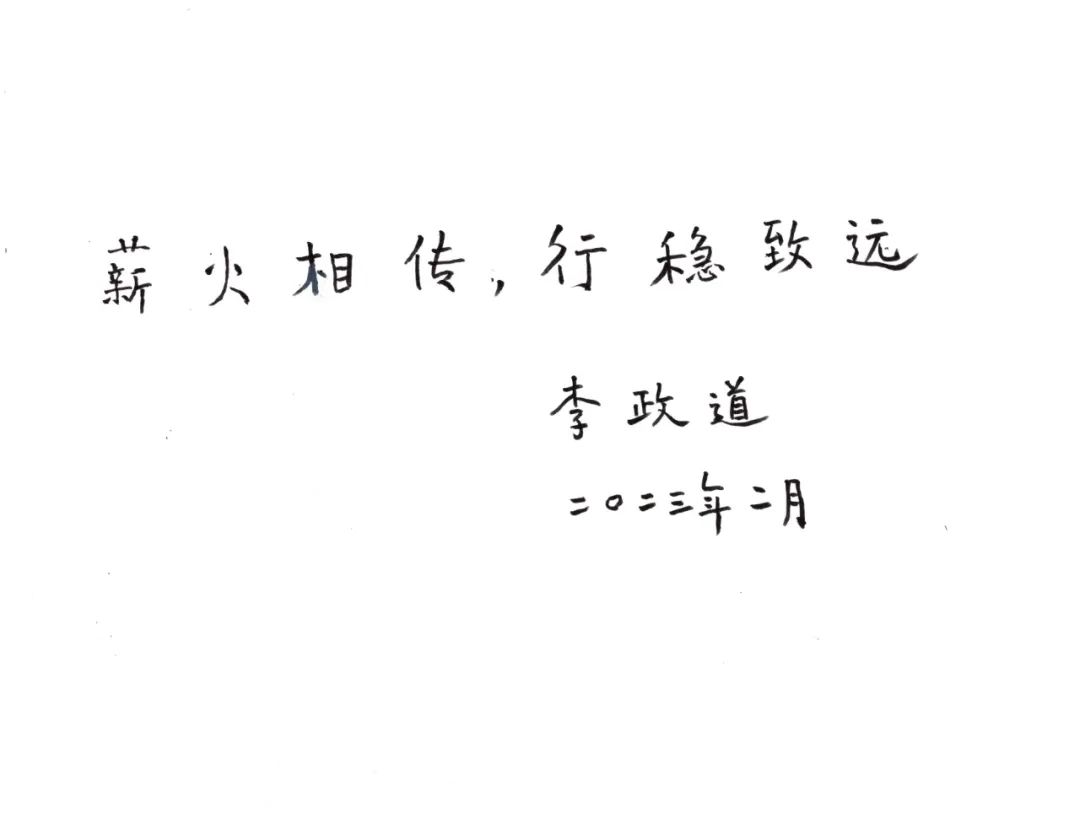 薪火相传，行稳致远
李政道
二〇二三年二月